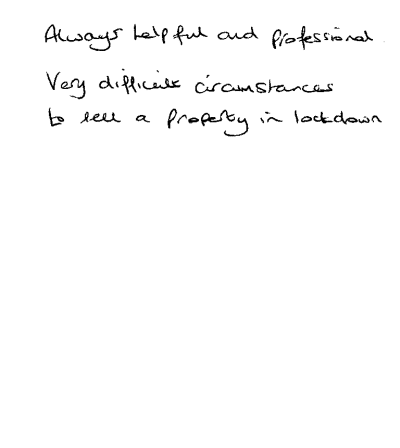 Always helpful and professional
Very difficult circumstances
to sell a Property in lockdown